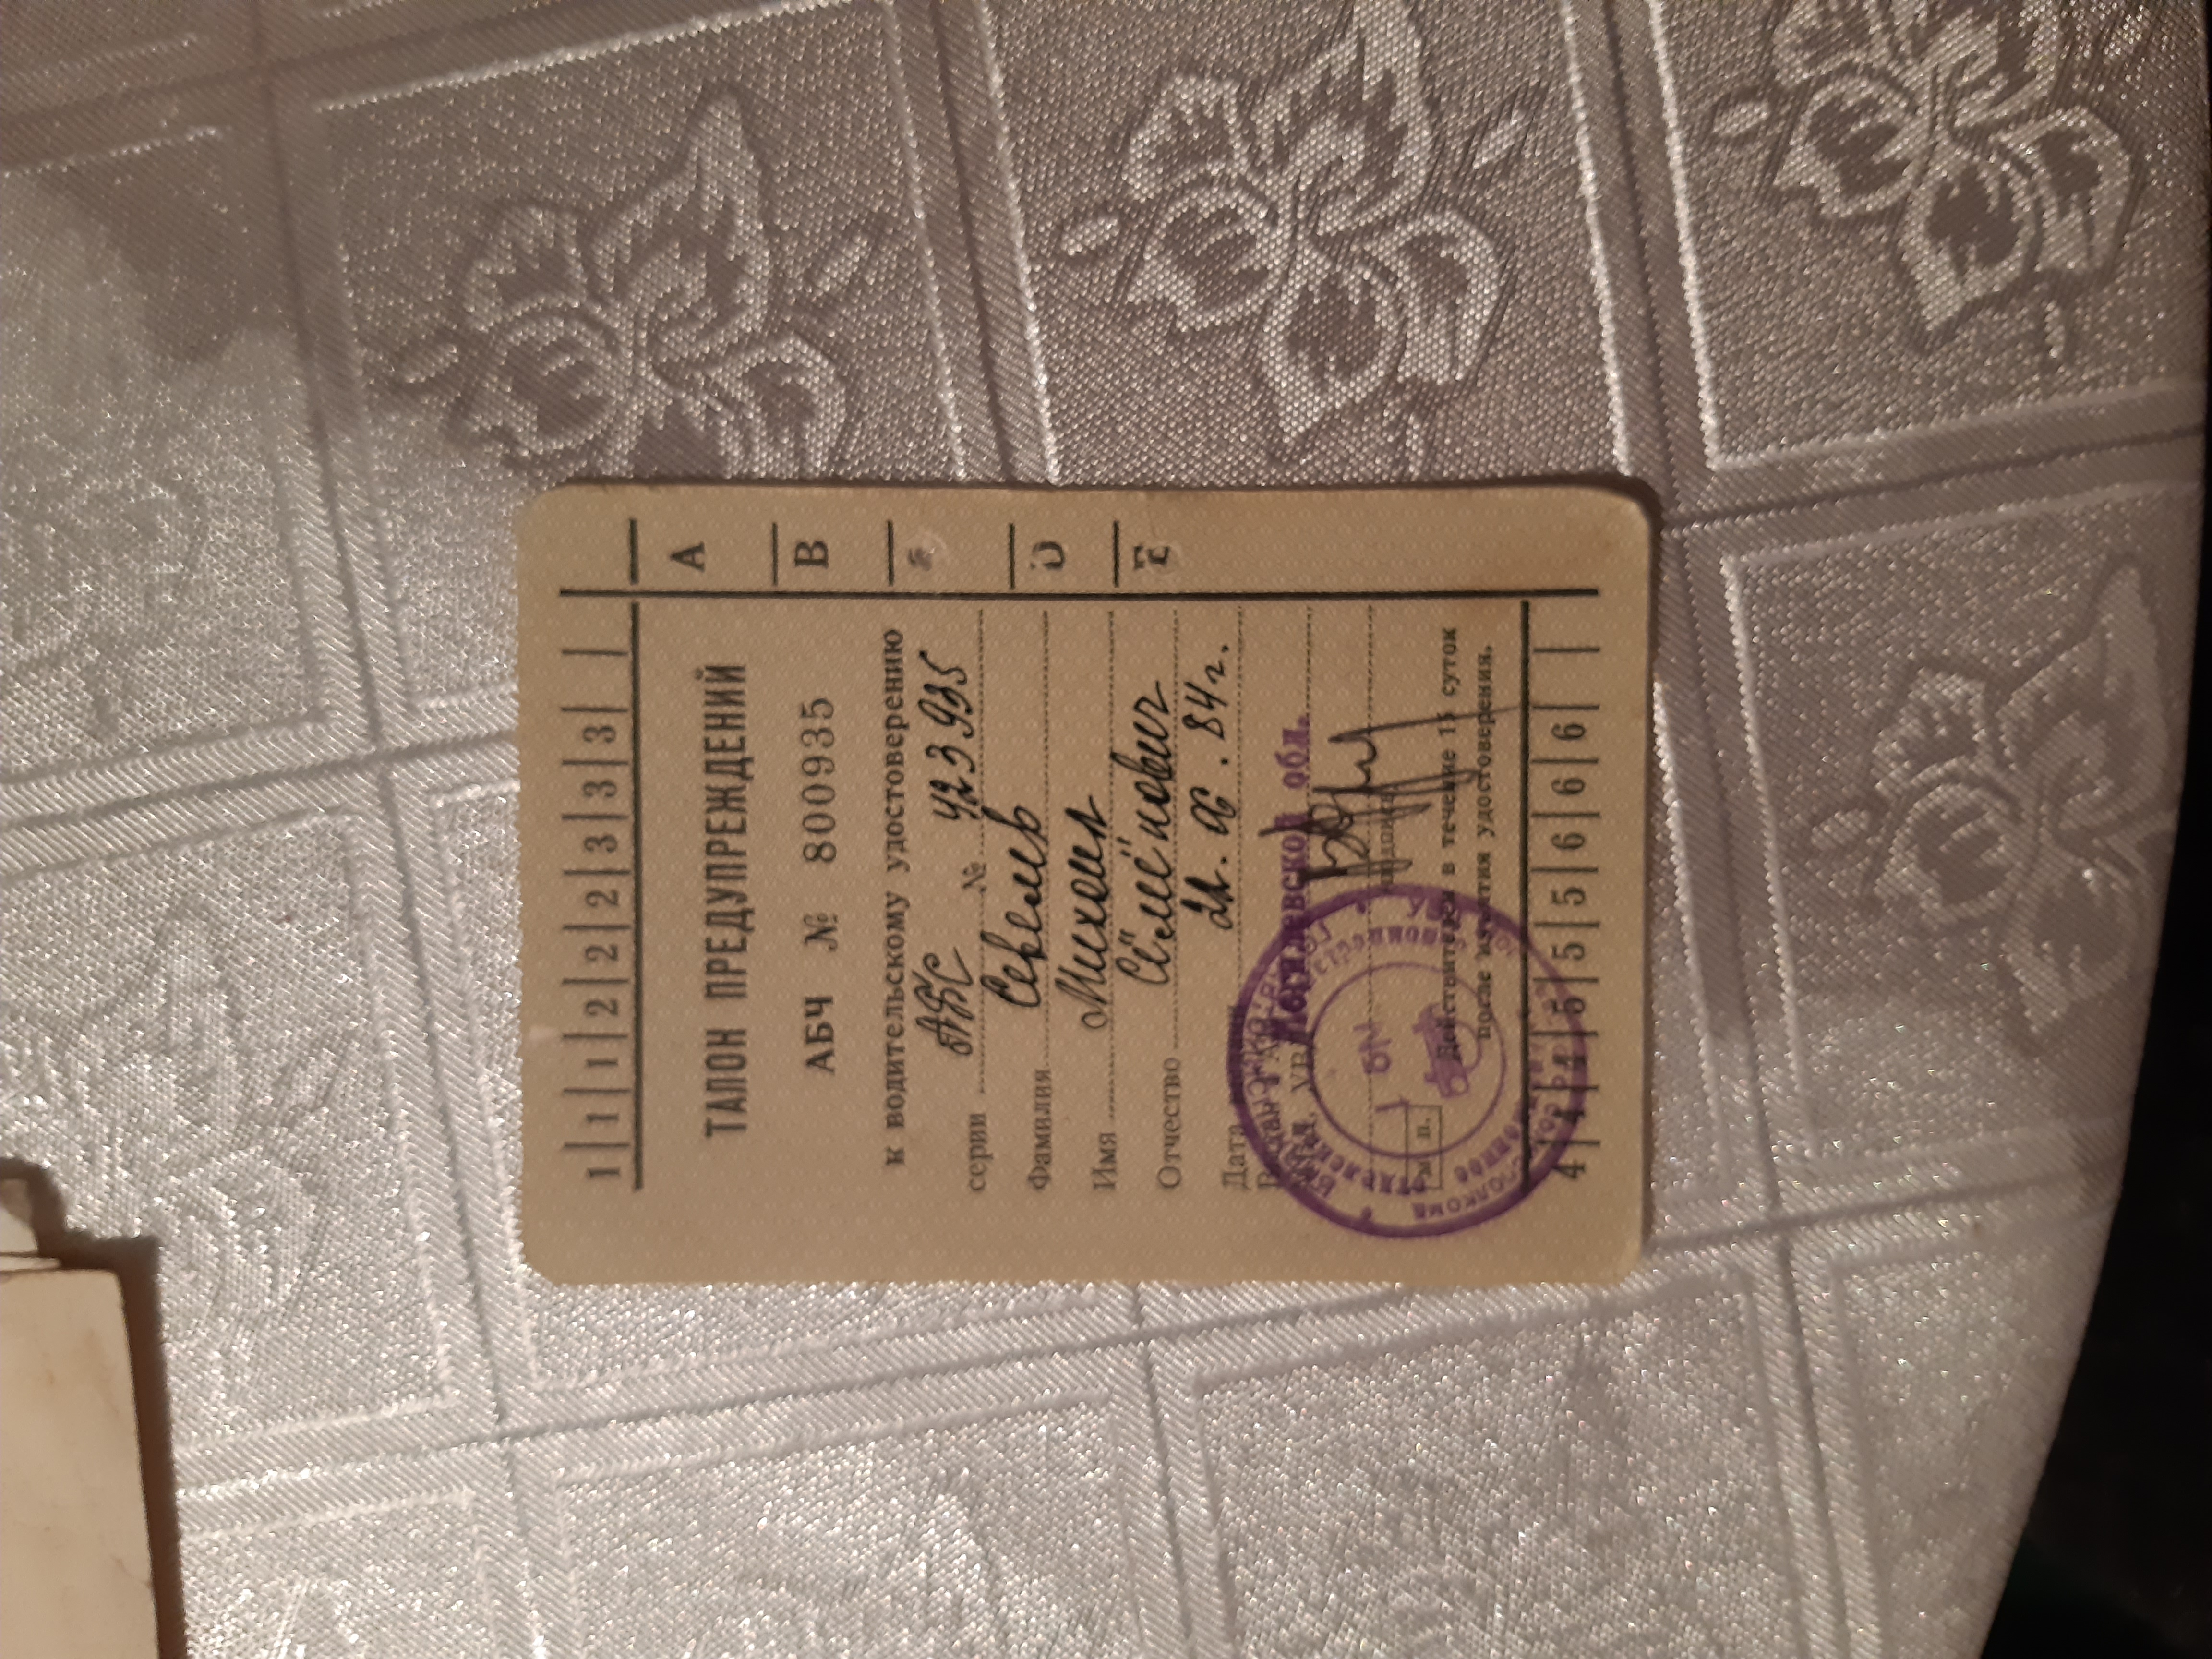 1 | 1 | 1 | 2 | 2 | 2 | 3 | 3 | 3 |
ТАЛОН ПРЕДУПРЕЖДЕНИЙ
АБЧ № 800935
к водительскому удостоверению
серии АБС № 423995
Фамилия
Имя Михаил
Отчество Семёнович
Дата 84 г.
Могилевской обл.
М. П.
Действителен в течение 15 суток
после изъятия удостоверения.
4 | 4 | 4 | 5 | 5 | 5 | 6 | 6 | 6 |
A
B
D
E